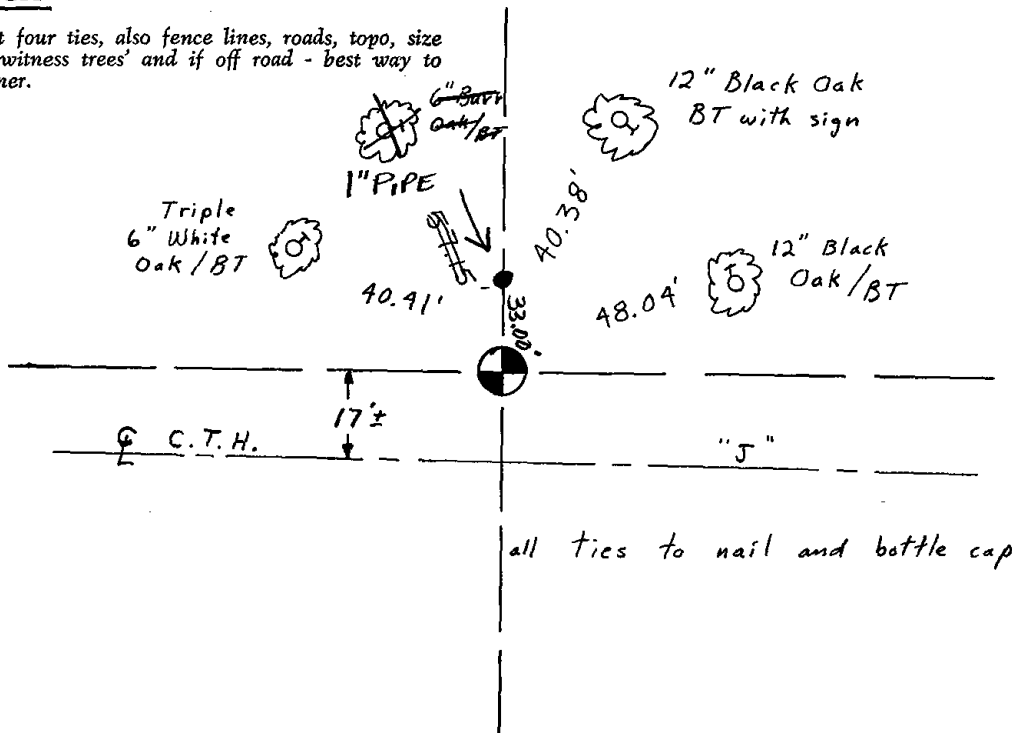 t four ties, also fence lines, roads, topo, size
witness trees' and if off road - best way to
ner.
6" Burr
Oak/BT
12" Black Oak
BT with sign
1" PIPE
Triple
6" White
Oak / BT
40.38'
12" Black
Oak/BT
40.41'
48.04'
33.00'
17'±
℄ C.T.H.
"J"
all ties to nail and bottle cap